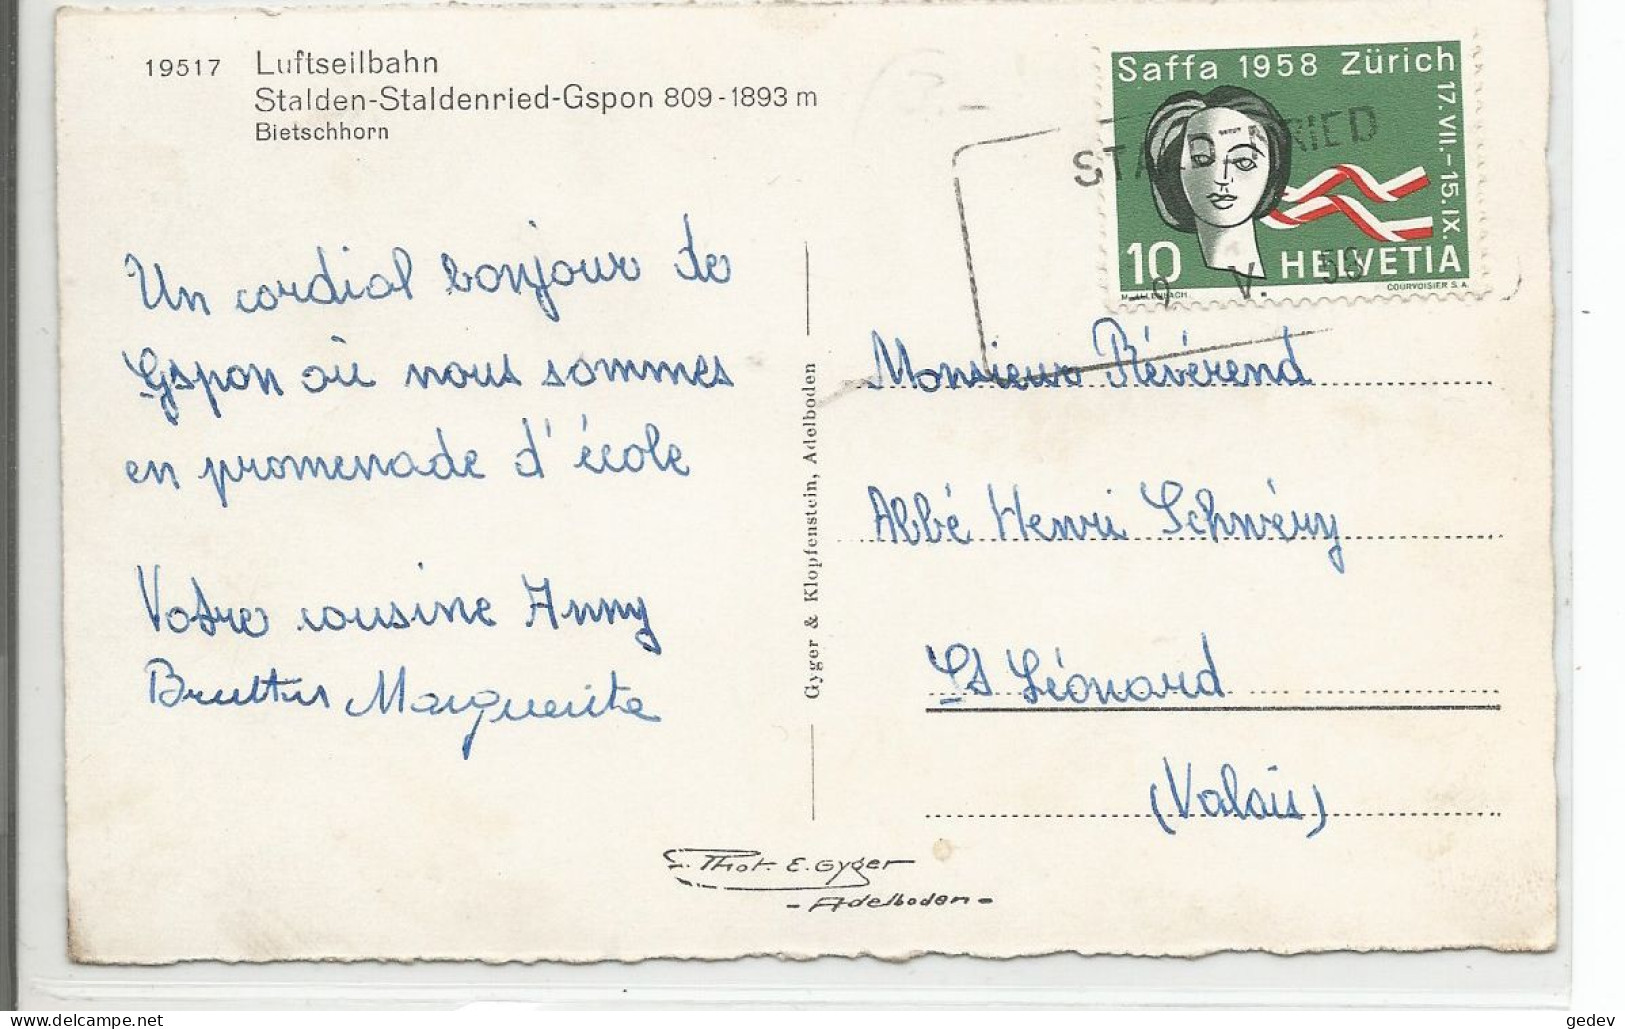 19517 Luftseilbahn
Stalden-Staldenried-Gspon 809-1893 m
Bietschhorn
Saffa 1958 Zürich
17.VII.-15.IX.
10 HELVETIA
COURVOISIER S.A.
STALDENRIED
V. 58
Un cordial bonjour de
Gspon où nous sommes
en promenade d'école
Votre cousine Anny
Bruttin Marguerite
Gyger & Klopfenstein, Adelboden
Monsieur Révérend
Abbé Henri Schwéry
St Léonard
(Valais)
Phot. E. Gyger
- Adelboden -
www.delcampe.net
gedev